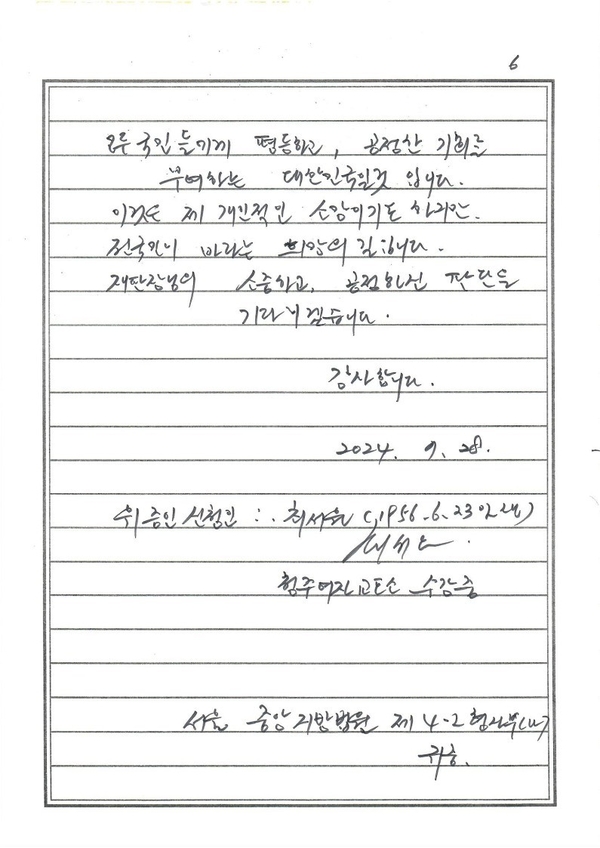 6
모든 국민들에게 평등하고, 공정한 기회를
부여하는 대한민국일것 입니다.
이것은 제 개인적인 소망이기도 하지만.
전국민이 바라는 희망의 길입니다.
재판장님의 소중하고, 공정하신 판단을
기다리겠습니다.
감사합니다.
2024. 9. 28.
위 증인 신청인 : 최서원 (1956.6.23일생)
청주여자교도소 수감중
서울 중앙지방법원 제 4-2 형사부(나)
귀중.